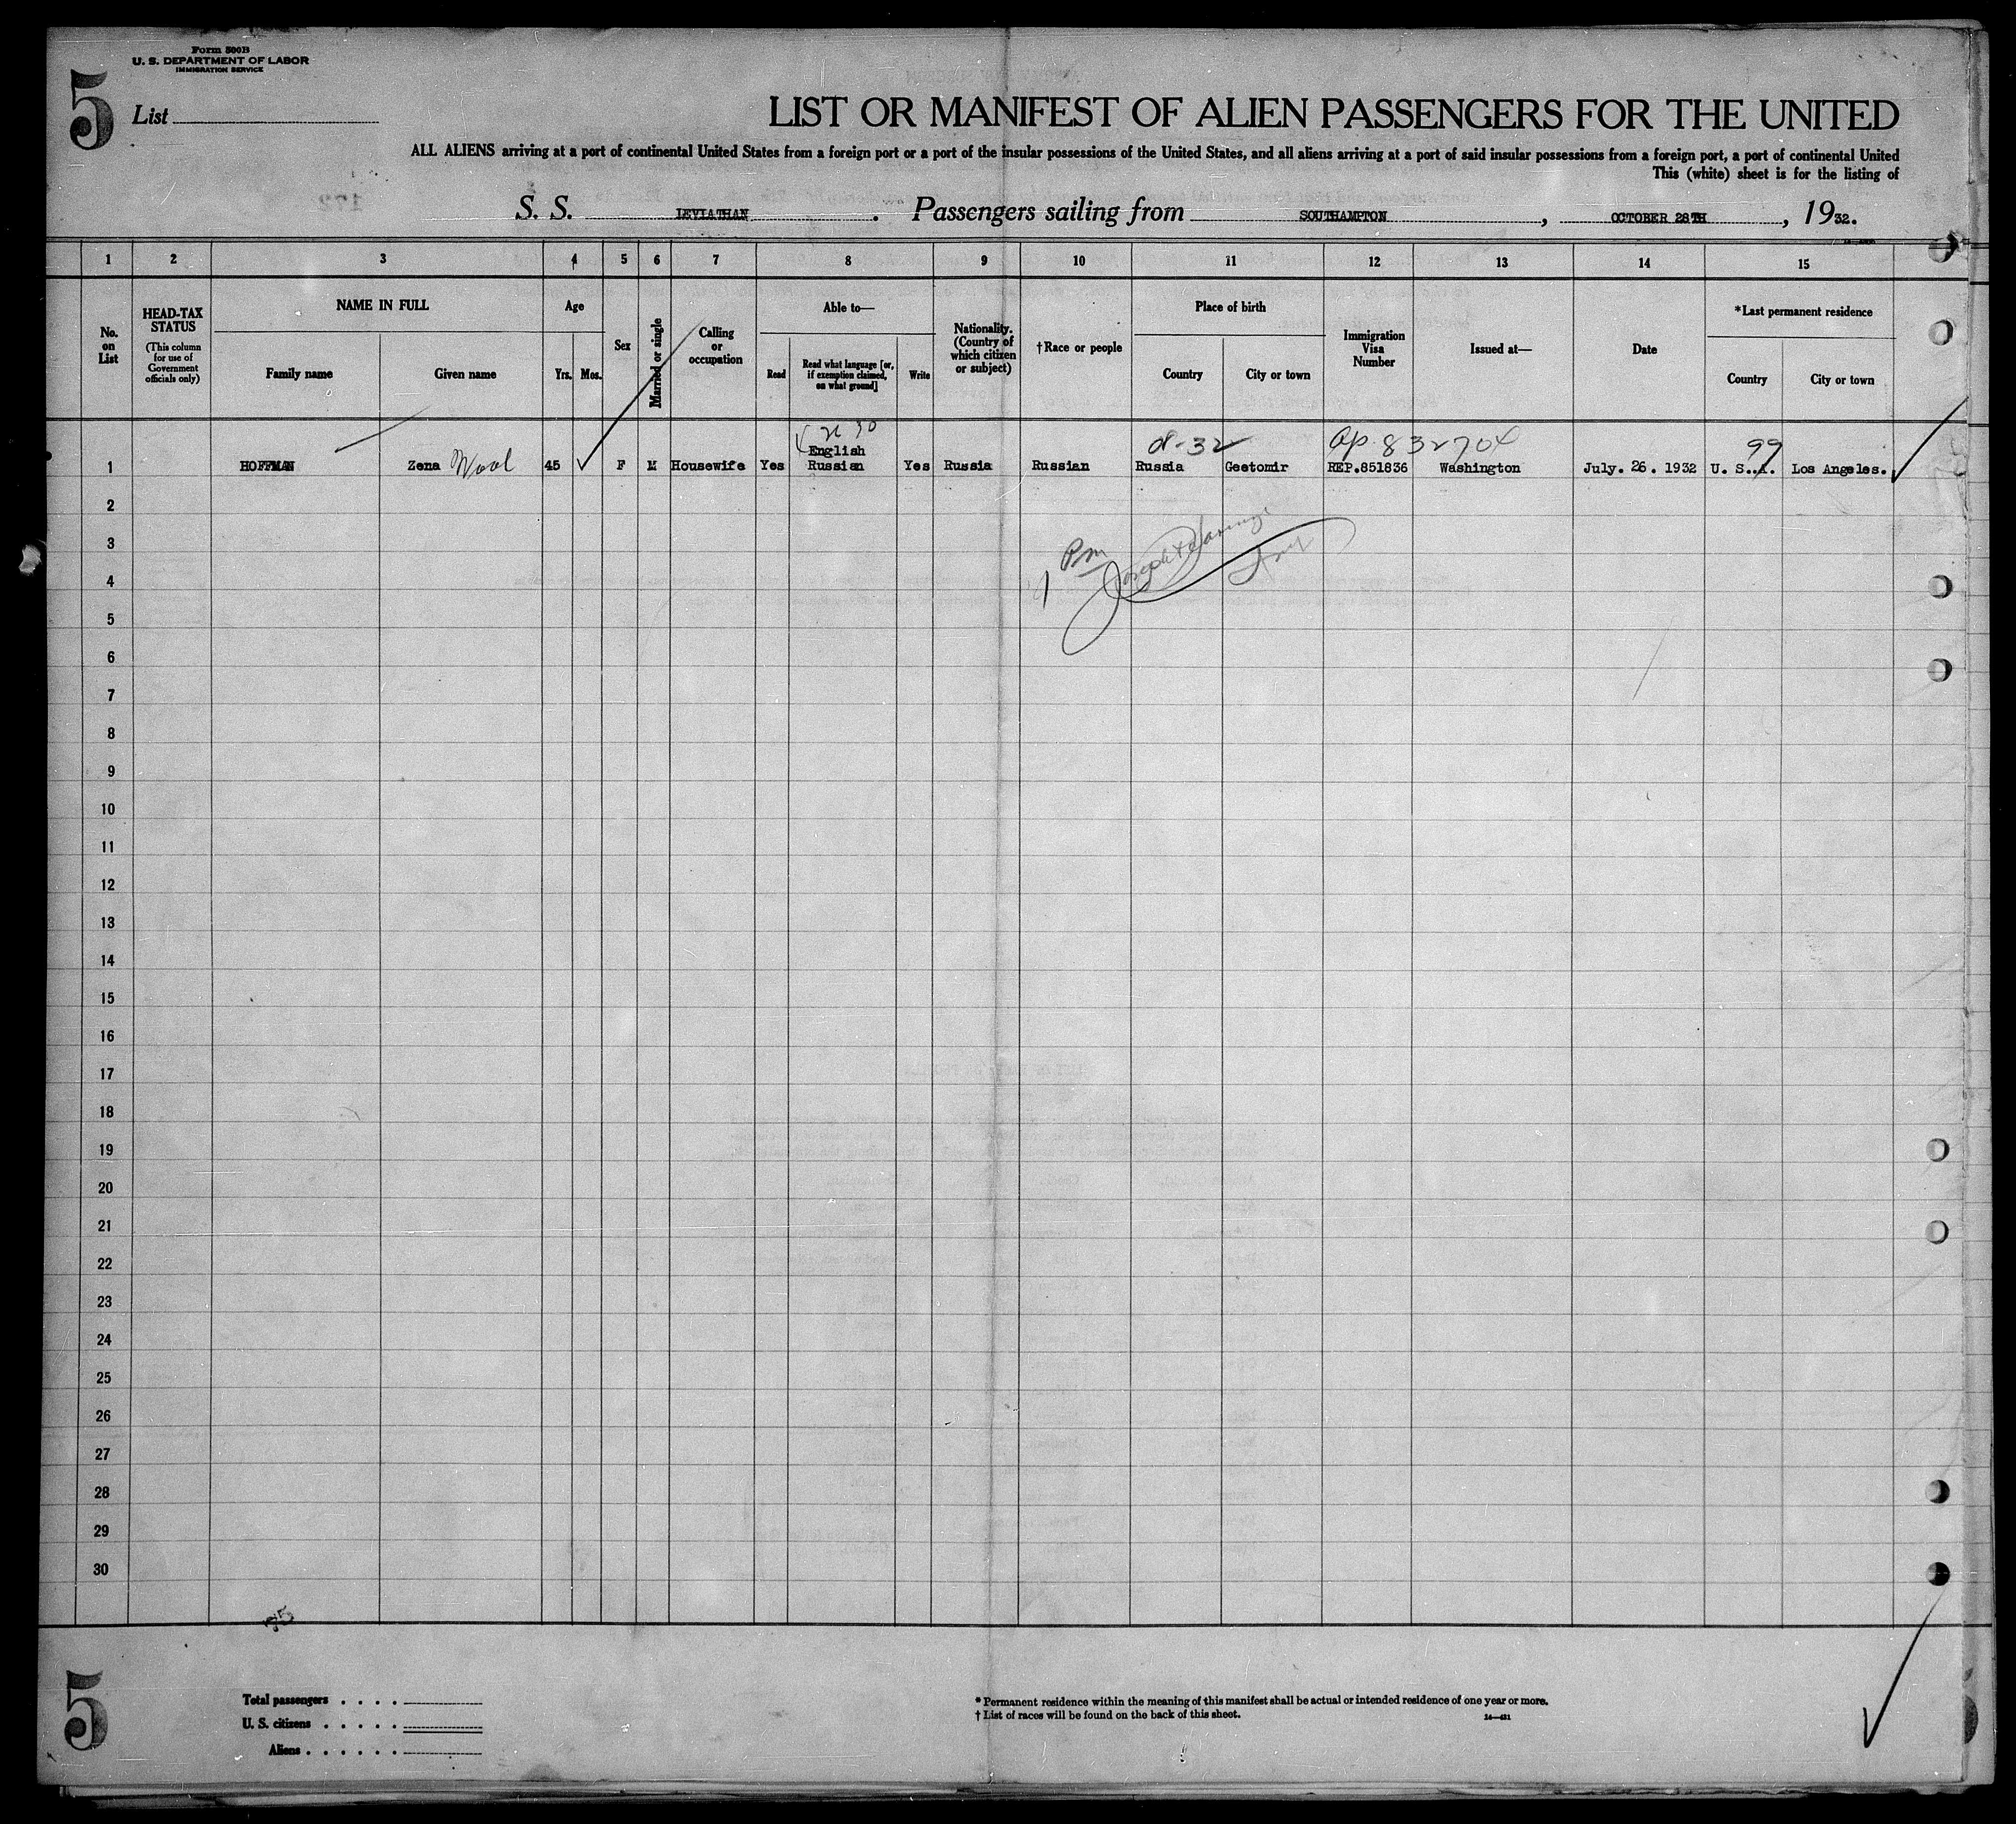 Form 500B
U. S. DEPARTMENT OF LABOR
IMMIGRATION SERVICE
5
List
LIST OR MANIFEST OF ALIEN PASSENGERS FOR THE UNITED
ALL ALIENS arriving at a port of continental United States from a foreign port or a port of the insular possessions of the United States, and all aliens arriving at a port of said insular possessions from a foreign port, a port of continental United
This (white) sheet is for the listing of
S. S. LEVIATHAN . Passengers sailing from SOUTHAMPTON , OCTOBER 28TH , 1932.
1 2 3 4 5 6 7 8 9 10 11 12 13 14 15
No. on List
HEAD-TAX STATUS
(This column for use of Government officials only)
NAME IN FULL
Family name
Given name
Age
Yrs. Mos.
Sex
Married or single
Calling or occupation
Able to—
Read
Read what language [or, if exemption claimed, on what ground]
Write
Nationality. (Country of which citizen or subject)
†Race or people
Place of birth
Country
City or town
Immigration Visa Number
Issued at—
Date
*Last permanent residence
Country
City or town
d-32
ap. 832704
99
English
1 HOFFMAN Zena Wool 45 F M Housewife Yes Russian Yes Russia Russian Russia Geetomir REP.851836 Washington July. 26. 1932 U. S. A. Los Angeles.
2
3
Pm
4
5
6
7
8
9
10
11
12
13
14
15
16
17
18
19
20
21
22
23
24
25
26
27
28
29
30
5
Total passengers . . . .
U. S. citizens . . . . .
Aliens . . . . . .
* Permanent residence within the meaning of this manifest shall be actual or intended residence of one year or more.
† List of races will be found on the back of this sheet.